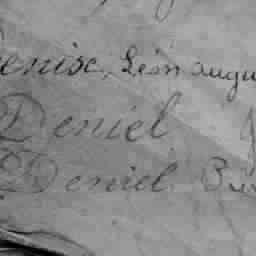 Denise, Léon augu
Deniel
Deniel